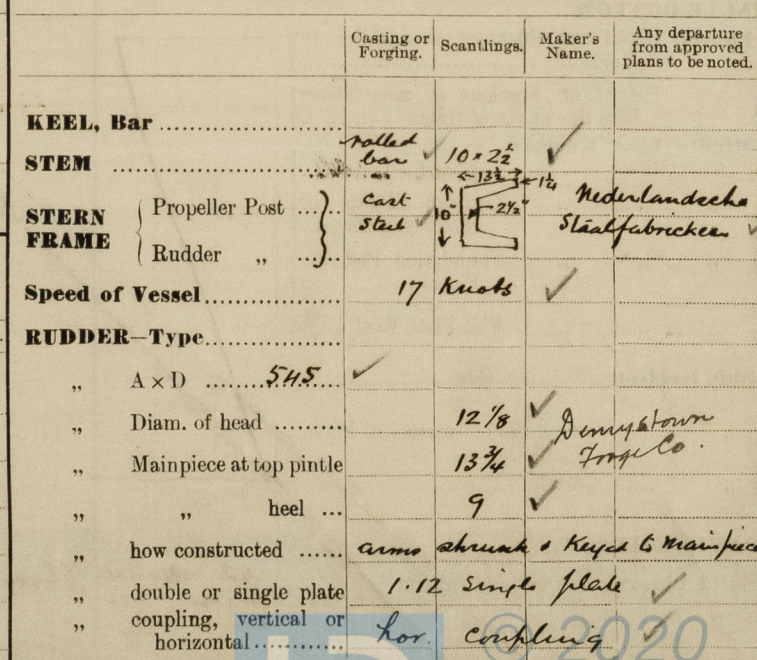 Casting or Forging. Scantlings. Maker's Name. Any departure from approved plans to be noted.
KEEL, Bar
STEM rolled bar ✓ 10 × 2½ ✓
13½ 1¼
STERN FRAME { Propeller Post } cast steel ✓ 10" 2½" Nederlandsche
Rudder „ Staalfabrieken ✓
Speed of Vessel 17 Knots ✓
RUDDER—Type
„ A × D 545 ✓
„ Diam. of head 12 1/8 ✓ Dennystown
„ Mainpiece at top pintle 13 3/4 ✓ Forge Co.
„ „ heel ... 9 ✓
„ how constructed arms shrunk & Keyed to Mainpiece
„ double or single plate 1.12 Single plate ✓
„ coupling, vertical or horizontal hor. coupling ✓
© 2020